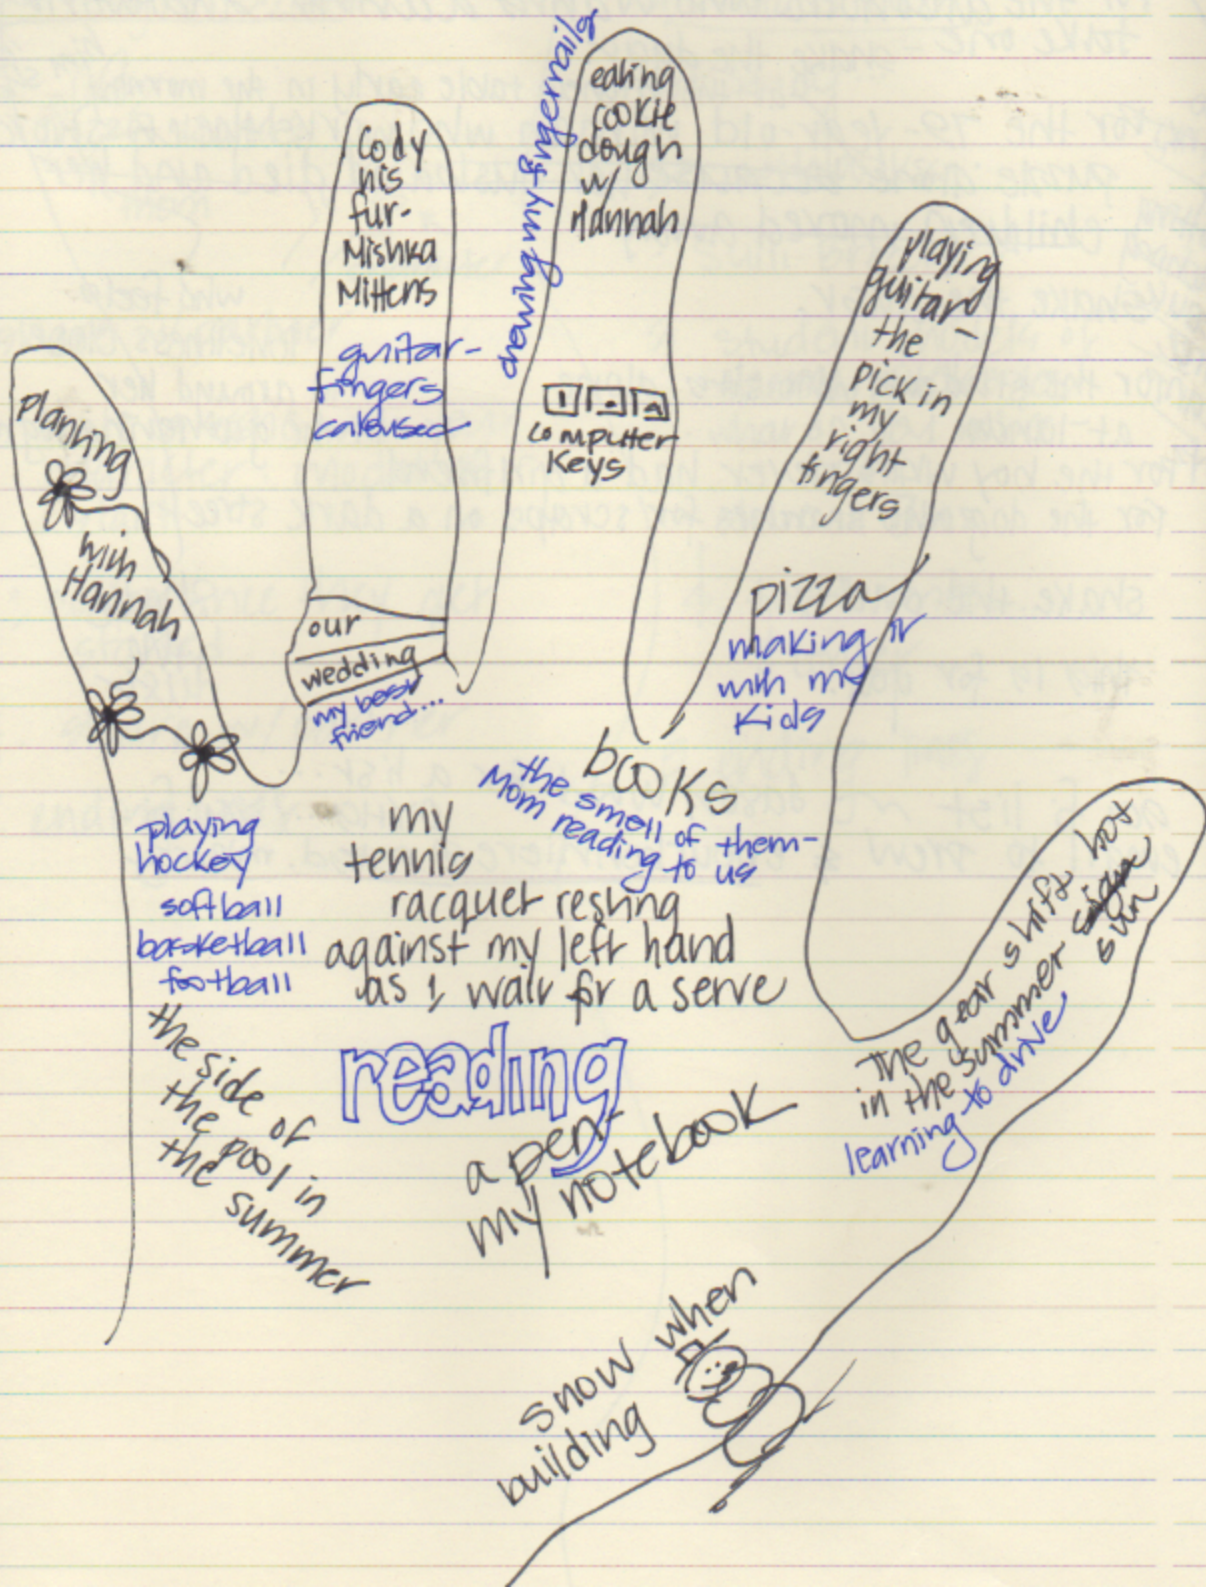 planting
with
Hannah
Cody
his
fur-
Mishka
Mittens
guitar-
fingers
caloused
our
wedding
my best
friend...
chewing my fingernails
eating
cookie
dough
w/
Hannah
computer
keys
playing
guitar-
the
pick in
my
right
fingers
pizza
making it
with my
kids
books
the smell of them-
Mom reading to us
playing
hockey
softball
basketball
football
my
tennis
racquet resting
against my left hand
as I wait for a serve
the side of
the pool in
the summer
reading
a pen
my notebook
The gear shift hot
in the summer sun
learning to drive
snow when
building